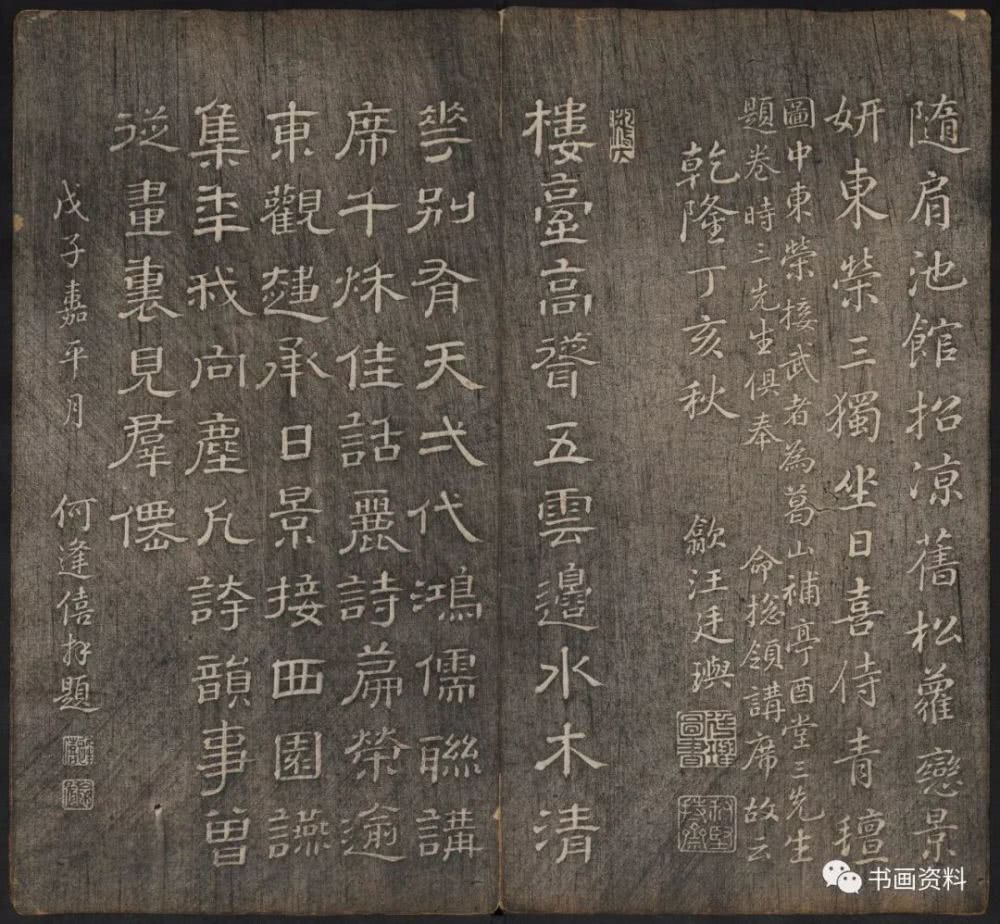 隨肩池館招涼舊松蘿戀景
妍東榮三獨坐日喜侍青氊
圖中東榮接武者為葛山補亭酉堂三先生
題卷時三先生俱奉 命總領講席故云
乾隆丁亥秋 歙汪廷璵
樓臺高聳五雲邊水木清
華別有天弌代鴻儒聯講
席千秋佳話麗詩篇榮逾
東觀趨承日景接西園讌
集年我向塵凡誇韻事曾
從畫裏見羣僊
戊子嘉平月 何逢僖拜題
书画资料